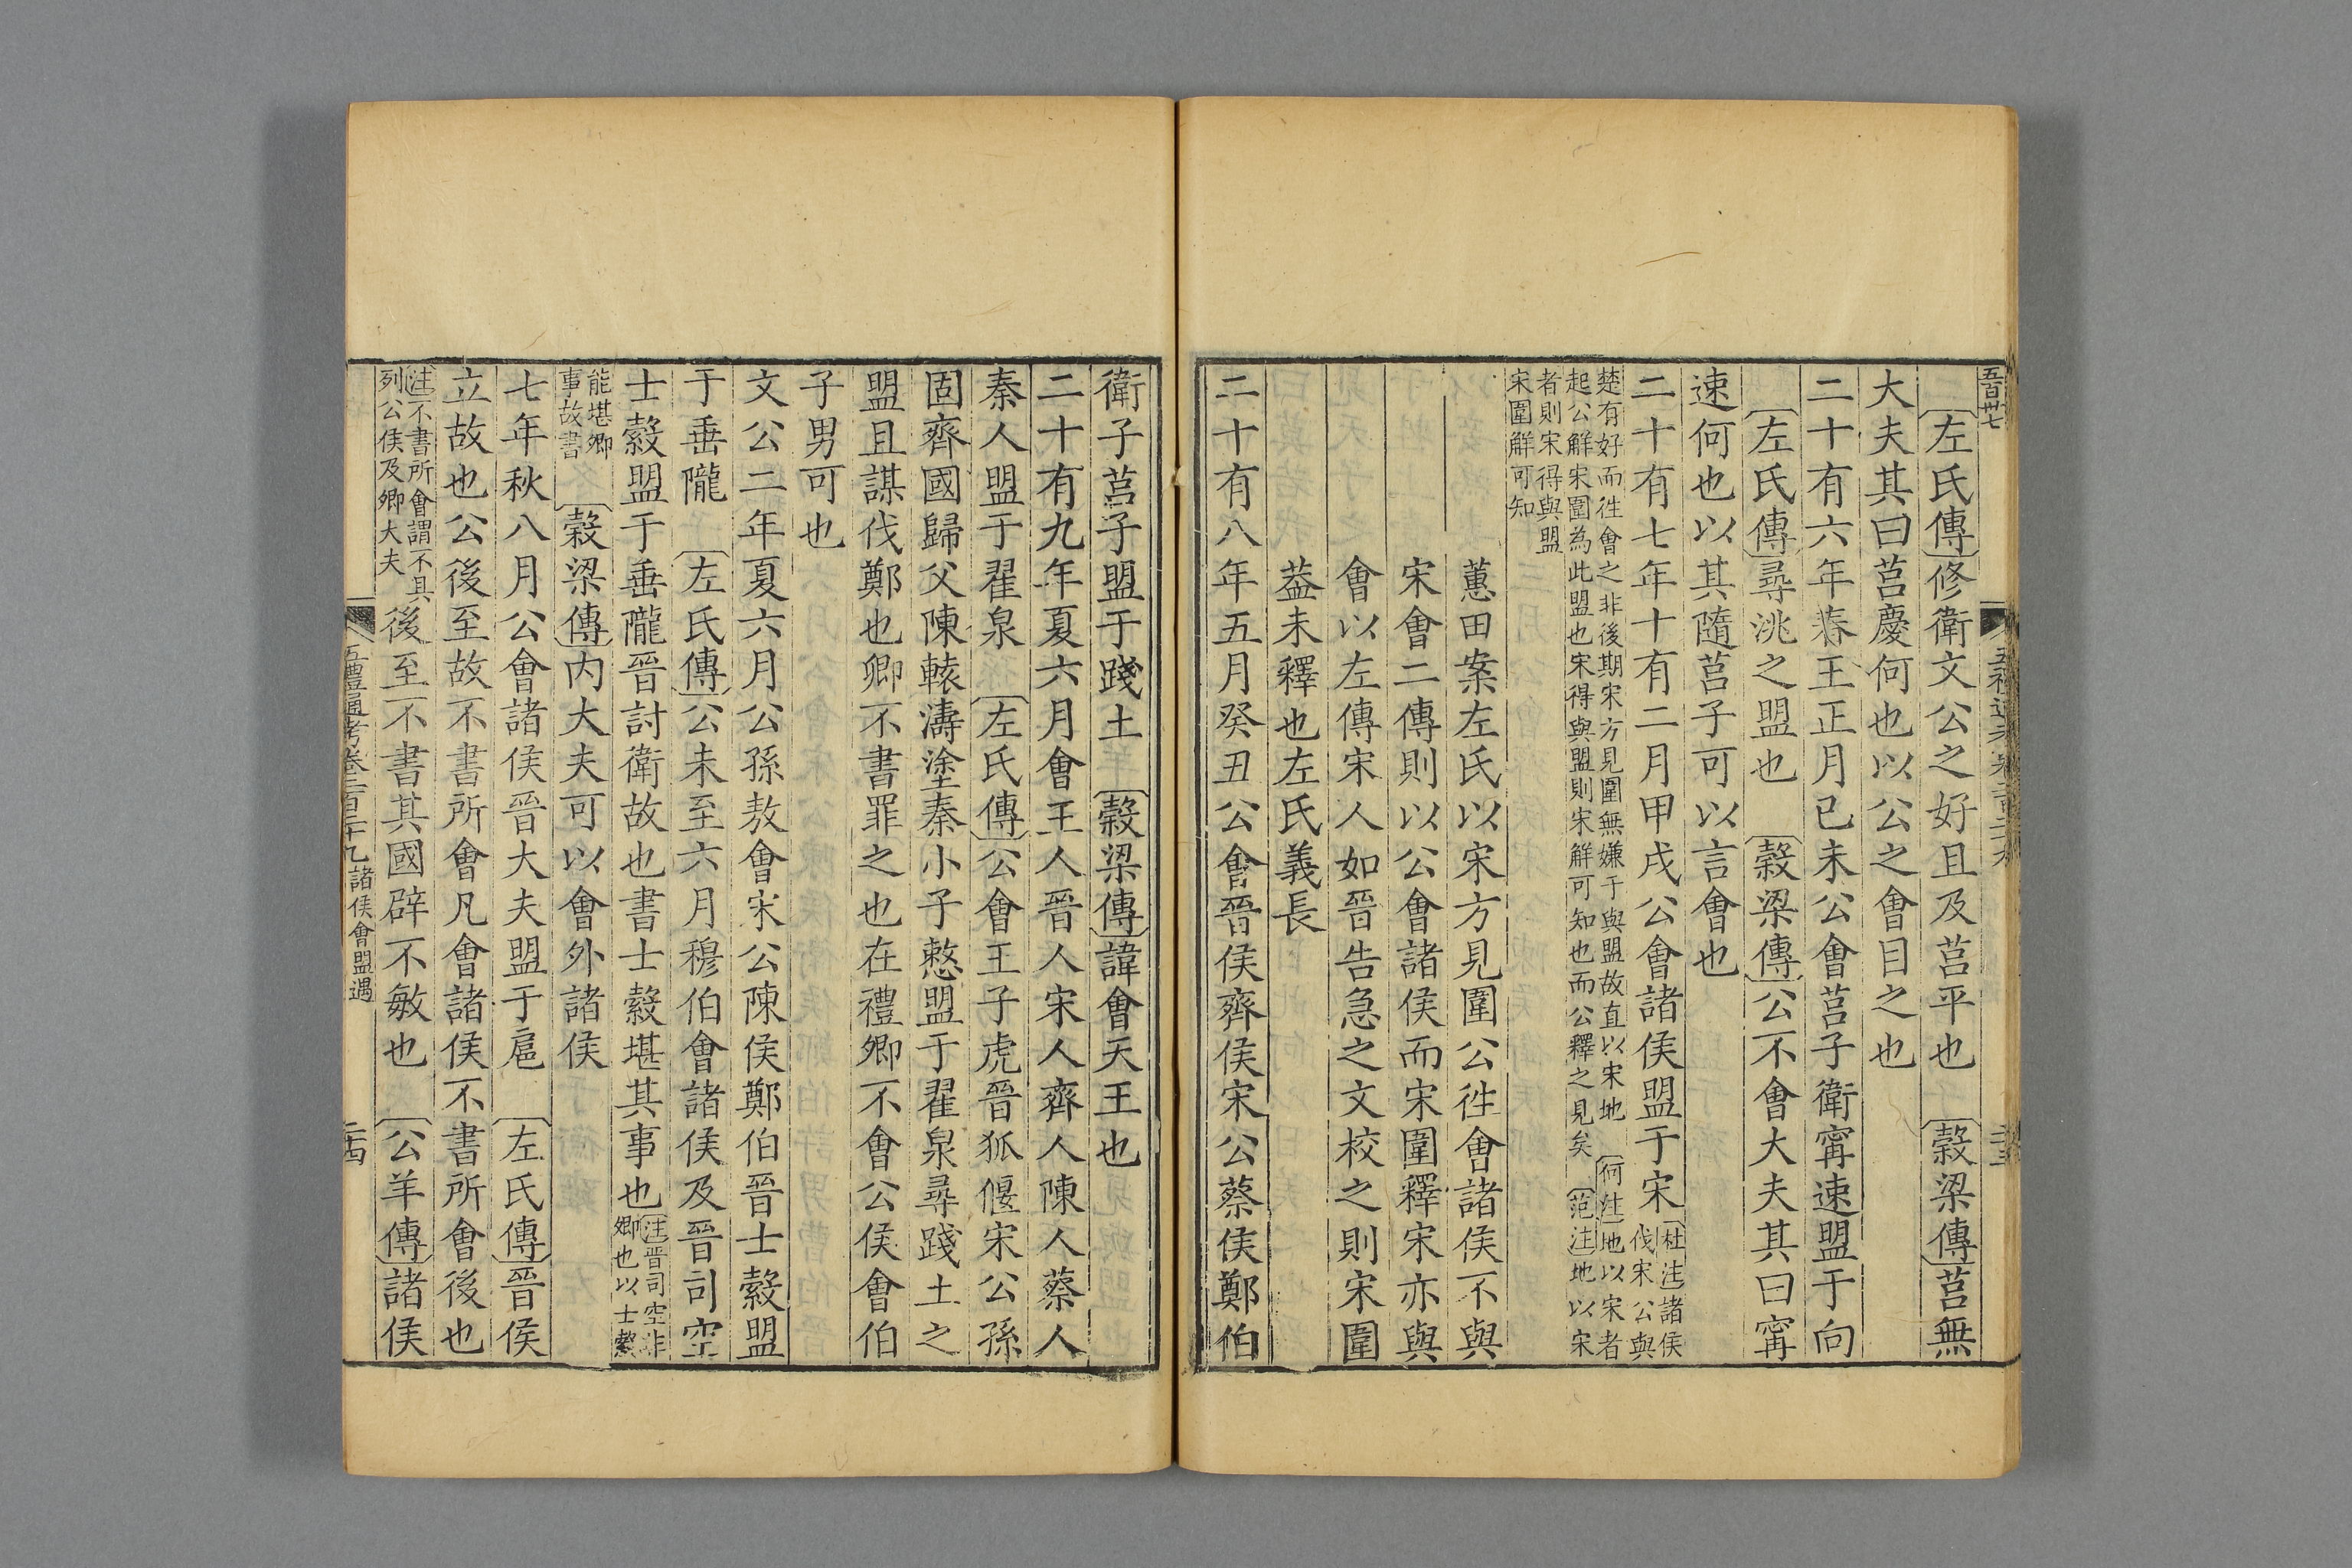 五百卅七
左氏傳修衛文公之好且及莒平也　穀梁傳莒無
大夫其曰莒慶何也以公之會目之也
二十有六年春王正月已未公會莒子衛甯速盟于向
左氏傳尋洮之盟也　穀梁傳公不會大夫其曰甯
速何也以其隨莒子可以言會也
二十有七年十有二月甲戌公會諸侯盟于宋杜注諸侯伐宋公與
楚有好而徃會之非後期宋方見圍無嫌于與盟故直以宋地　何注地以宋者
起公解宋圍為此盟也宋得與盟則宋解可知也而公釋之見矣　范注地以宋
者則宋得與盟
宋圍解可知
蕙田案左氏以宋方見圍公徃會諸侯不與
宋會二傳則以公會諸侯而宋圍釋宋亦與
會以左傳宋人如晉告急之文校之則宋圍
葢未釋也左氏義長
二十有八年五月癸丑公會晉侯齊侯宋公蔡侯鄭伯
衛子莒子盟于踐土　穀梁傳諱會天王也
二十有九年夏六月會王人晉人宋人齊人陳人蔡人
秦人盟于翟泉　左氏傳公會王子虎晉狐偃宋公孫
固齊國歸父陳轅濤塗秦小子憖盟于翟泉尋踐土之
盟且謀伐鄭也卿不書罪之也在禮卿不會公侯會伯
子男可也
文公二年夏六月公孫敖會宋公陳侯鄭伯晉士縠盟
于垂隴　左氏傳公未至六月穆伯會諸侯及晉司空
士縠盟于垂隴晉討衛故也書士縠堪其事也注晉司空非卿也以士縠
能堪卿事故書　穀梁傳内大夫可以會外諸侯
七年秋八月公會諸侯晉大夫盟于扈　左氏傳晉侯
立故也公後至故不書所會凡會諸侯不書所會後也
注不書所會謂不具列公侯及卿大夫後至不書其國辟不敏也　公羊傳諸侯
五禮通考卷二百二十九諸侯會盟遇　二十四